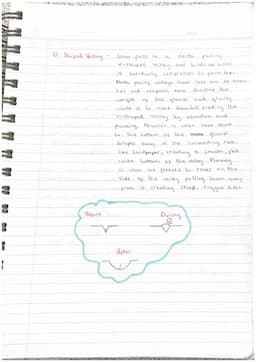 U-Shaped Valley - Snow falls in a north facing
V-Shaped Valley and builds up until
it eventually compresses to form ice.
North facing valleys have less sun to
and compacts more. Overtime the
weight of the glacier and gravity
cause it to move downhill eroding the
V-Shaped Valley by abrasion and
plucking. Abrasion is when rocks stuck
to the bottom of the glacier
scrape away at the surrounding rock
like sandpaper, creating a smooth, flat
wide, bottom of the valley. Plucking
is when ice freezes to rocks on the
side of the valley pulling them away
from it creating steep, rugged sides.
Before
During
After